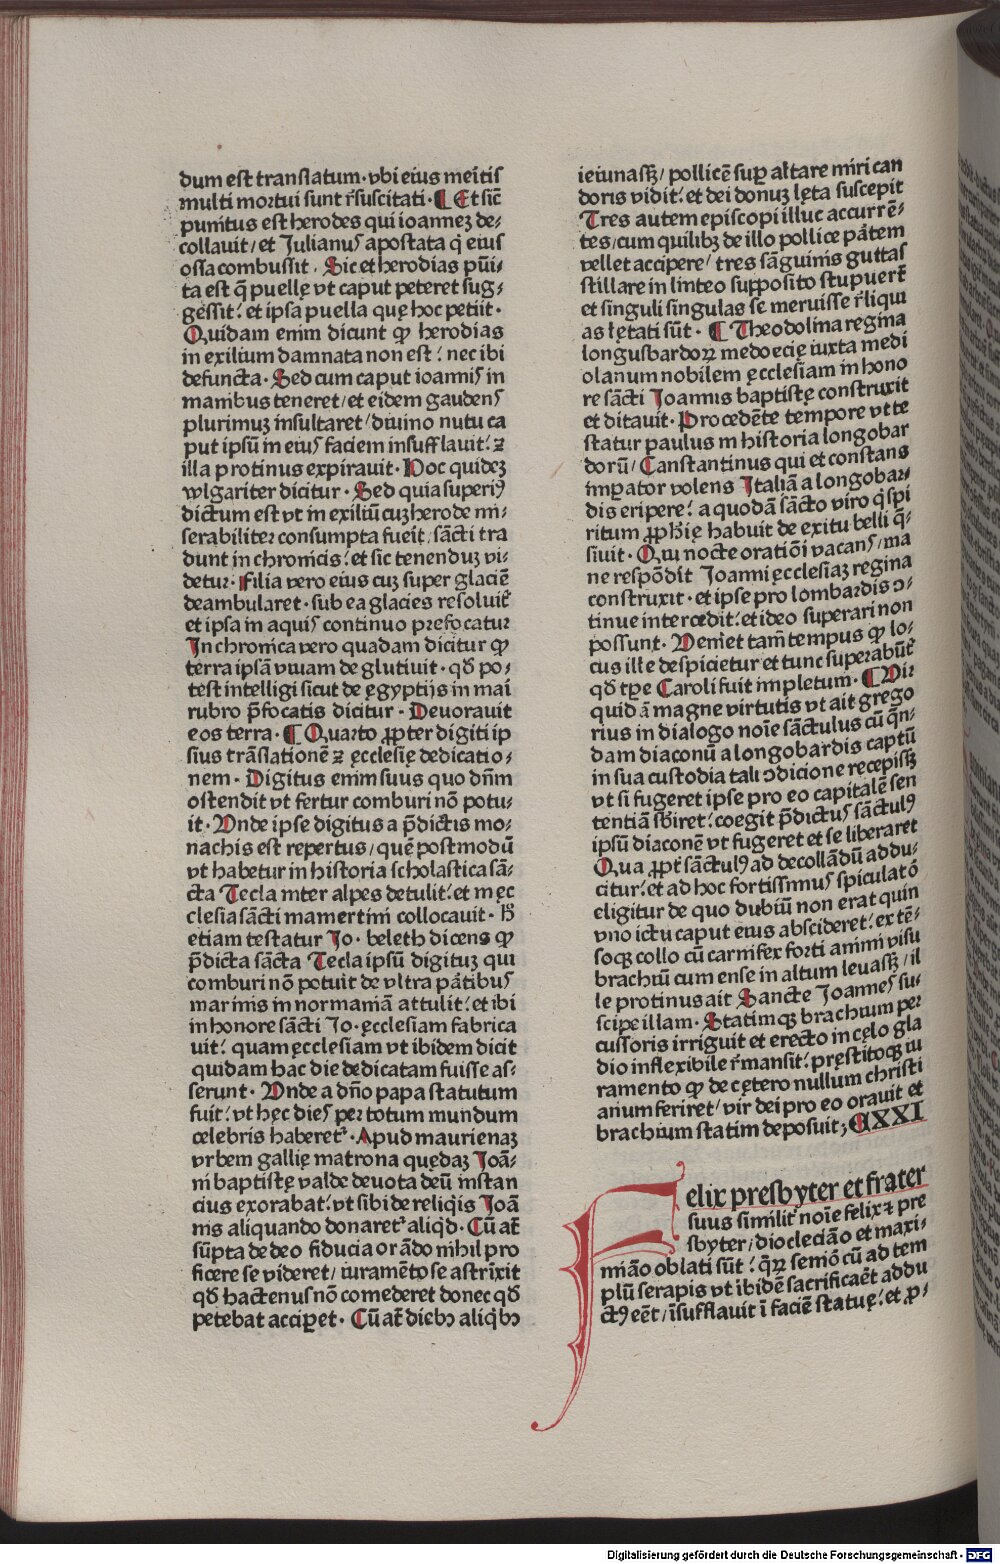 dum est translatum · vbi eius meītis
multi mortui sunt r̄suscitati · ¶ Et sic̄
punitus est herodes qui ioannez de⸗
collauit / et Julianus apostata q̄ eius
ossa combussit · Sic et herodias pūi⸗
ta est q̄ puellę vt caput peteret sug⸗
gessit : et ipsa puella quę hoc petiit ·
Quidam enim dicunt ꝙ herodias
in exilium damnata non est : nec ibi
defuncta · Sed cum caput ioannis in
manibus teneret / et eidem gaudens
plurimuz insultaret / diuino nutu ca
put ipsū in eius faciem insufflauit : ⁊
illa protinus expirauit · Hoc quidez
wlgariter dicitur · Sed quia superiꝰ
dictum est vt in exiliū cuz herode mi⸗
serabiliter consumpta fue͛it / sācti tra
dunt in chronicis : et sic tenenduz vi⸗
detur · Filia vero eius cuz super glaciē
deambularet · sub ea glacies resoluit͛
et ipsa in aquis continuo prefocatur
In chronica vero quadam dicitur ꝙ
terra ipsā viuam deglutiuit · qd̄ po⸗
test intelligi sicut de egyptijs in mai
rubro p̄focatis dicitur · Deuorauit
eos terra · ¶ Quarto ꝓpter digiti ip
sius trāslationē ⁊ ęcclesię dedicatio⸗
nem · Digitus enim suus quo dn̄m
ostendit vt fertur comburi nō potu⸗
it · Vnde ipse digitus a p̄dictis mo⸗
nachis est repertus / quē postmodū
vt habetur in historia scholastica sā⸗
cta Tecla inter alpes detulit : et in ęc
clesia sācti mamertini collocauit · H̄
etiam testatur Jo · beleth dicens ꝙ
p̄dicta sācta Tecla ipsū digituz qui
comburi nō potuit de vltra pātibus
marinis in normaniā attulit : et ibi
in honore sācti Jo · ęcclesiam fabrica
uit : quam ęcclesiam vt ibidem dicit
quidam hac die dedicatam fuisse as⸗
serunt · Vnde a dn̄o papa statutum
fuit : vt hęc dies per totum mundum
celebris haberet᷑ · Apud maurienaz
vrbem gallię matrona quędaz Joā⸗
ni baptistę valde deuota deū instan
cius exorabat : vt sibi de reliq̇is Joā
nis aliquando donaret᷑ aliqd̄ · Cū at̄
sūpta de deo fiducia orādo nihil pro
ficere se videret / iuramēto se astrīxit
qd̄ hactenus nō comederet donec qd̄
petebat acciꝑet · Cū at̄ diebꝫ aliq̇bꝫ
ieiunassꝫ / pollicē suꝑ altare miri can
doris vidit : et dei donuz lęta suscepit
Tres autem episcopi illuc accurrē⸗
tes / cum quilibꝫ de illo pollice pātem
vellet accipere / tres sāguinis guttas
stillare in linteo supposito stupuert̄
et singuli singulas se meruisse r̄liqui
as lętati sūt · ¶ Theodolina regina
longusbardoꝝ medoecię iuxta medi
olanum nobilem ęcclesiam in hono
re sācti Joannis baptistę construxit
et ditauit · Procedēte tempore vt te
statur paulus in historia longobar
dorū / Canstantinus qui et constans
imꝑator volens Italiā a longobar⸗
dis eripere : a quodā sācto viro q̇ spi
ritum ꝓph̄ię habuit de exitu belli q̄⸗
siuit · Qui nocte oratiōi vacans / ma
ne respōdit Joanni ęcclesiaz regina
construxit · et ipse pro lombardis ↄ⸗
tinue intercedit : et ideo superari non
possunt · Veniet tam̄ tempus ꝙ lo⸗
cus ille despicietur et tunc superabūt͛
qd̄ tꝑe Caroli fuit impletum · ¶ Vir
quidā magne virtutis vt ait grego
rius in dialogo noīe sāctulus cū q̄n⸗
dam diaconū a longobardis captū
in sua custodia tali ↄdicione recepissꝫ
vt si fugeret ipse pro eo capitalē sen
tentiā sb̄iret : coegit p̄dictus sāctulꝰ
ipsū diaconē vt fugeret et se liberaret
Qua ꝓpt̄ sāctulꝰ ad decollādū addu⸗
citur : et ad hoc fortissimus spiculatō
eligitur de quo dubiū non erat quin
vno ictu caput eius abscideret : extē⸗
soqꝫ collo cū carnifex forti animi visu
brachiū cum ense in altum leuassꝫ / il
le protinus ait Sancte Joannes su⸗
scipe illam · Statimqꝫ brachium per
cussoris irriguit et erecto in cęlo gla
dio inflexibile r̄mansit : pręstitoqꝫ iu
ramento ꝙ de cętero nullum christi
anum feriret / vir dei pro eo orauit et
brachium statim deposuit ; CXXI
Felix presbyter et frater
suus similit͛ noīe felix ⁊ pre
sbyter / diocleciāo et maxi⸗
miāo oblati sūt : q̄ꝝ semō cū ad tem
plū serapis vt ibidē sacrificaēt addu
ctꝰ eēt / īsufflauit ī faciē statuę : et ꝓ⸗
Digitalisierung gefördert durch die Deutsche Forschungsgemeinschaft · DFG